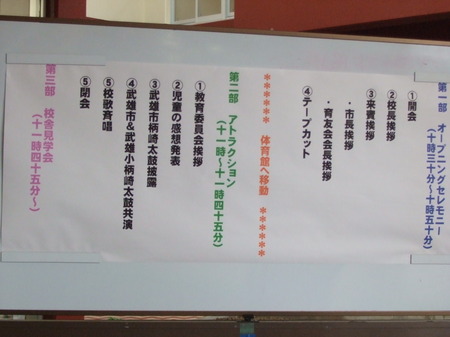 第一部 オープニングセレモニー
(十時三十分~十時五十分)
①開会
②校長挨拶
③来賓挨拶
・市長挨拶
・育友会会長挨拶
④テープカット
****** 体育館へ移動 ******
第二部 アトラクション
(十一時~十一時四十五分)
①教育委員会挨拶
②児童の感想発表
③武雄市柄崎太鼓披露
④武雄市&武雄小柄崎太鼓共演
⑤校歌斉唱
⑤閉会
第三部 校舎見学会
(十一時四十五分~)